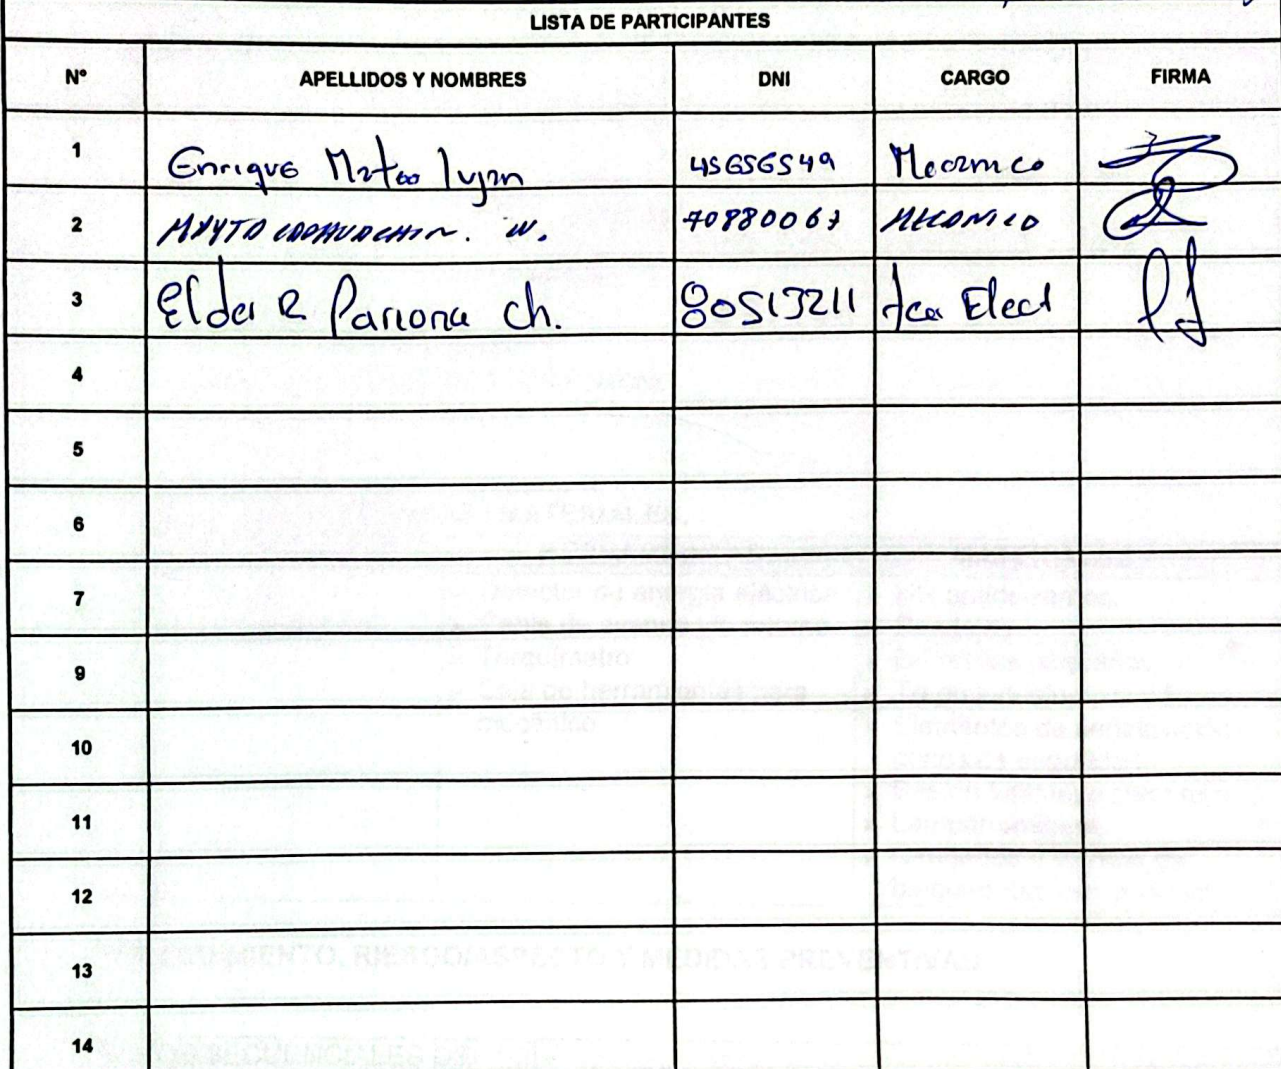 LISTA DE PARTICIPANTES
N° APELLIDOS Y NOMBRES DNI CARGO FIRMA
1 Enrique Mateo lujan 45656549 Mecanico
2 MAYTA W. 70880067 MECANICO
3 Elder R Pariona Ch. 80513211 Tec Elect
4
5
6
7
9
10
11
12
13
14